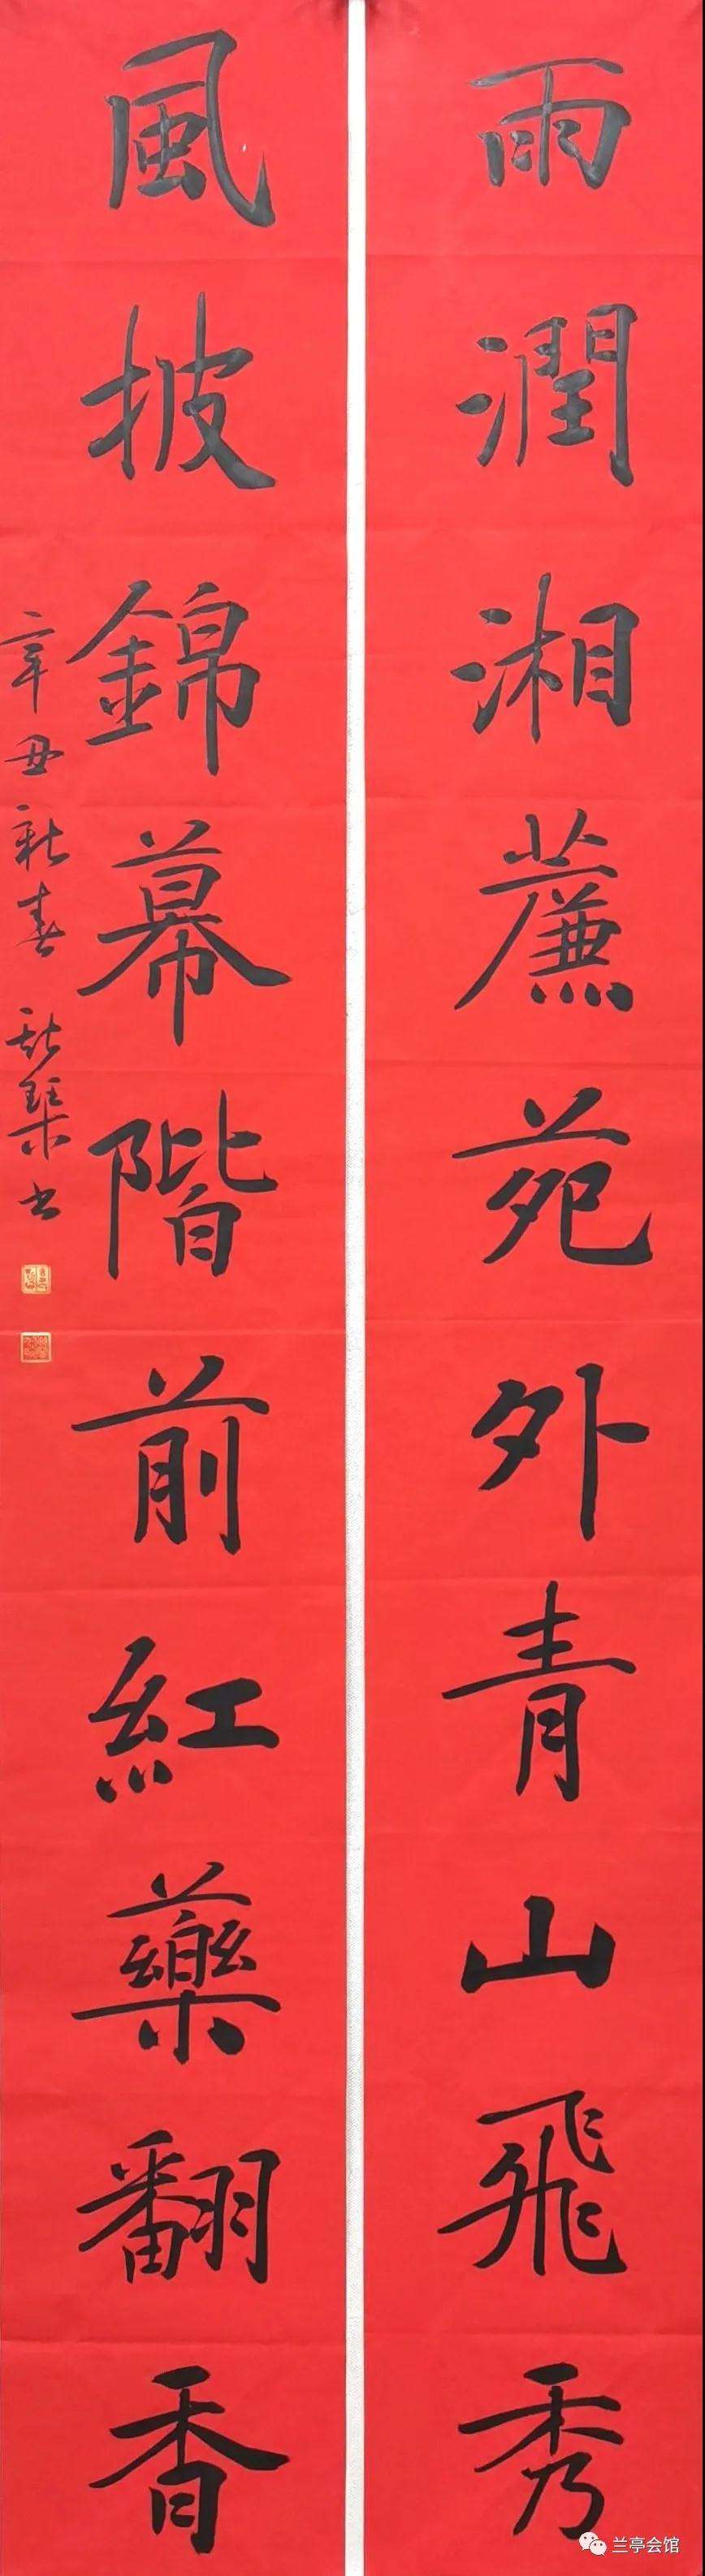 雨潤湘薕苑外青山飛秀
風披錦幕階前紅藥翻香
辛丑新春
書
兰亭会馆